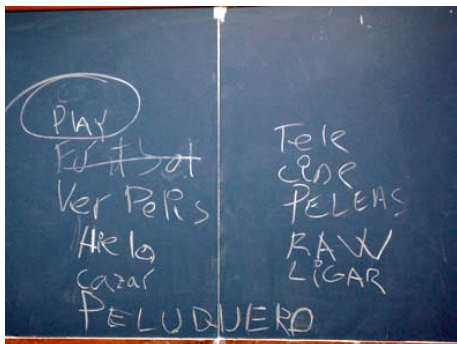 PLAY
Futbol
Ver Pelis
Hielo
cazar
PELUQUERO
Tele
cine
PELEAS
RAW
LIGAR